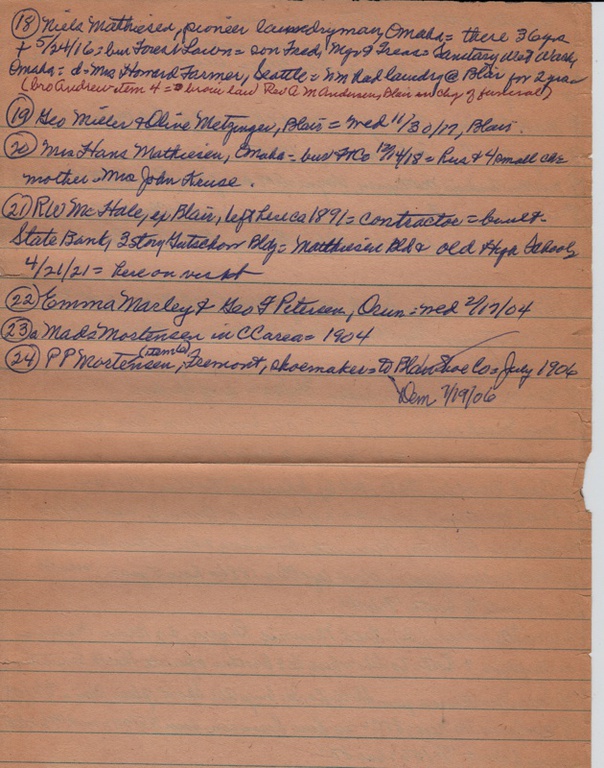 (18) Niels Mathiesen, pioneer laundryman, Omaha = there 36 yrs
+ 5/24/16 = bur Forest Lawn = son Fred, Mgr & Treas = Sanitary Wet Wash,
Omaha = d = Mrs Howard Farmer, Seattle = NM had laundry @ Blair for 2 yrs
(bro Andrew item 4 = bro in law Rev A M Andersen, Blair in chg of funeral)
(19) Geo Mieler & Olive Metzinger, Blair = wed 11/30/17, Blair.
(20) Mrs Hans Mathiesen, Omaha = bur 12/14/18 = hus & 4 small
mother = Mrs John Kruse.
(21) RW McHale, ex Blair, left here ca 1891 = contractor = built
State Bank, 3 story Gutschow Bldg = Matthiesen Bld & old High School
4/21/21 = here on visit
(22) Emma Marley & Geo F Petersen, Orum = wed 2/17/04
(23)a Mads Mortensen in CC area = 1904
(24) PP Mortensen, Fremont, shoemaker = to Blair Shoe Co = July 1906
Dem 7/19/06